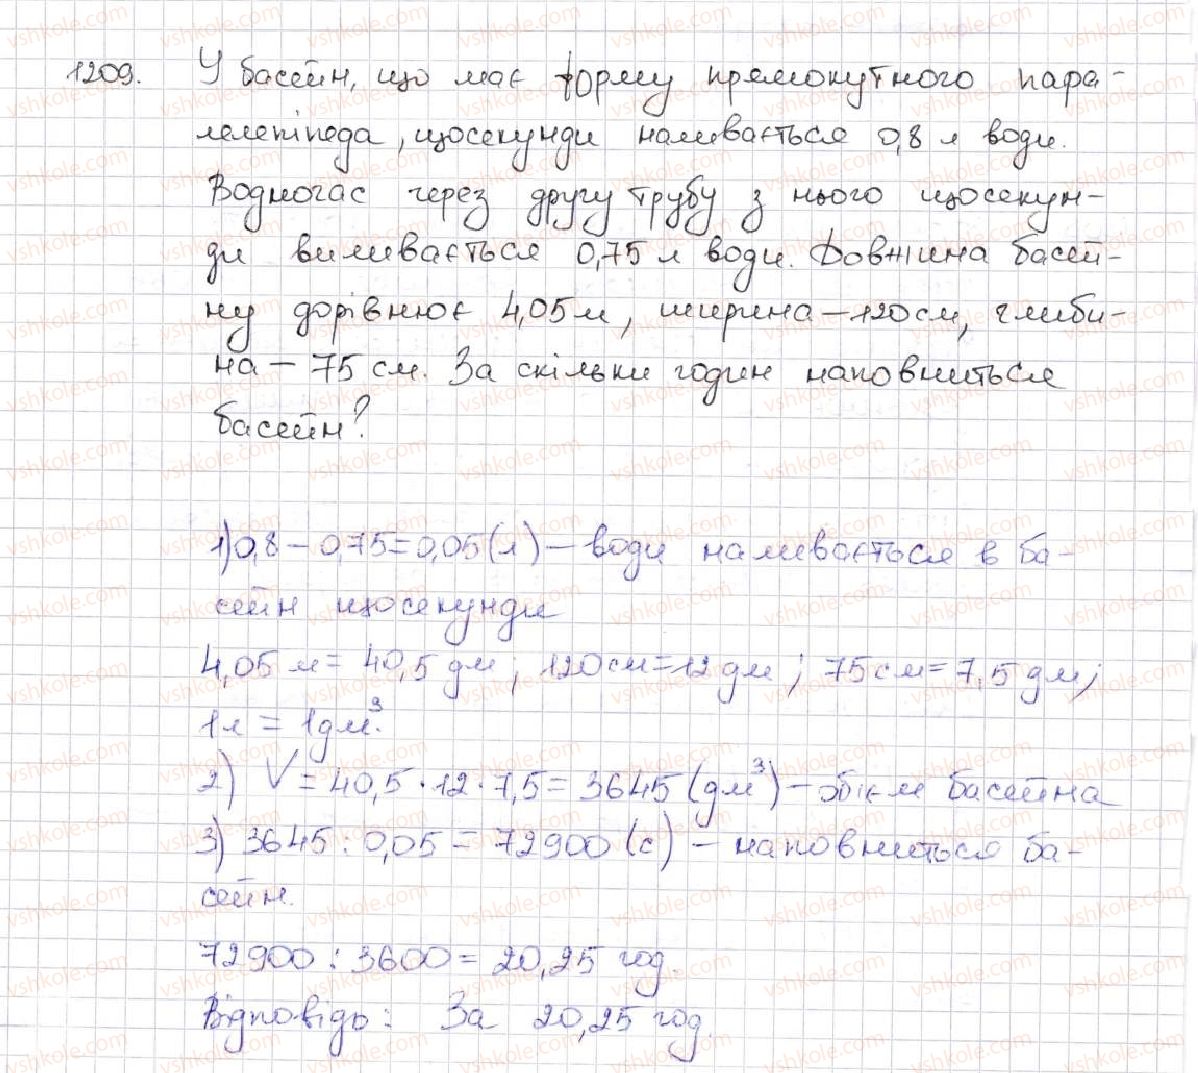 1209. У басейн, що має форму прямокутного пара-
лелепіпеда, щосекунди наливається 0,8 л води.
Водночас через другу трубу з нього щосекун-
ди виливається 0,75 л води. Довжина басей-
ну дорівнює 4,05 м, ширина – 120 см, глиби-
на – 75 см. За скільки годин наповниться
басейн?
1) 0,8 – 0,75 = 0,05 (л) – води наливається в ба-
сейн щосекунди
4,05 м = 40,5 дм; 120 см = 12 дм; 75 см = 7,5 дм;
1 л = 1 дм³.
2) V = 40,5 · 12 · 7,5 = 3645 (дм³) – обієм басейна
3) 3645 : 0,05 = 72900 (с) – наповниться ба-
сейн.
72900 : 3600 = 20,25 год.
Відповідь: За 20,25 год.